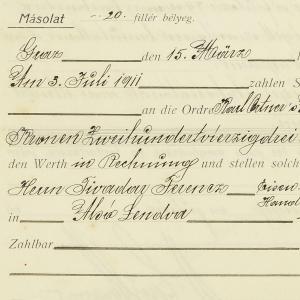 Másolat -- 20. fillér bélyeg.
Graz den 15. März
Am 3. Juli 1911 zahlen S
an die Ordre Karl Ortner
Kronen Zweihundertvierzigdrei
den Werth in Rechnung und stellen solch
Herrn Tivadar Ferencz Eisen
Hand
in Alsó Lendva
Zahlbar